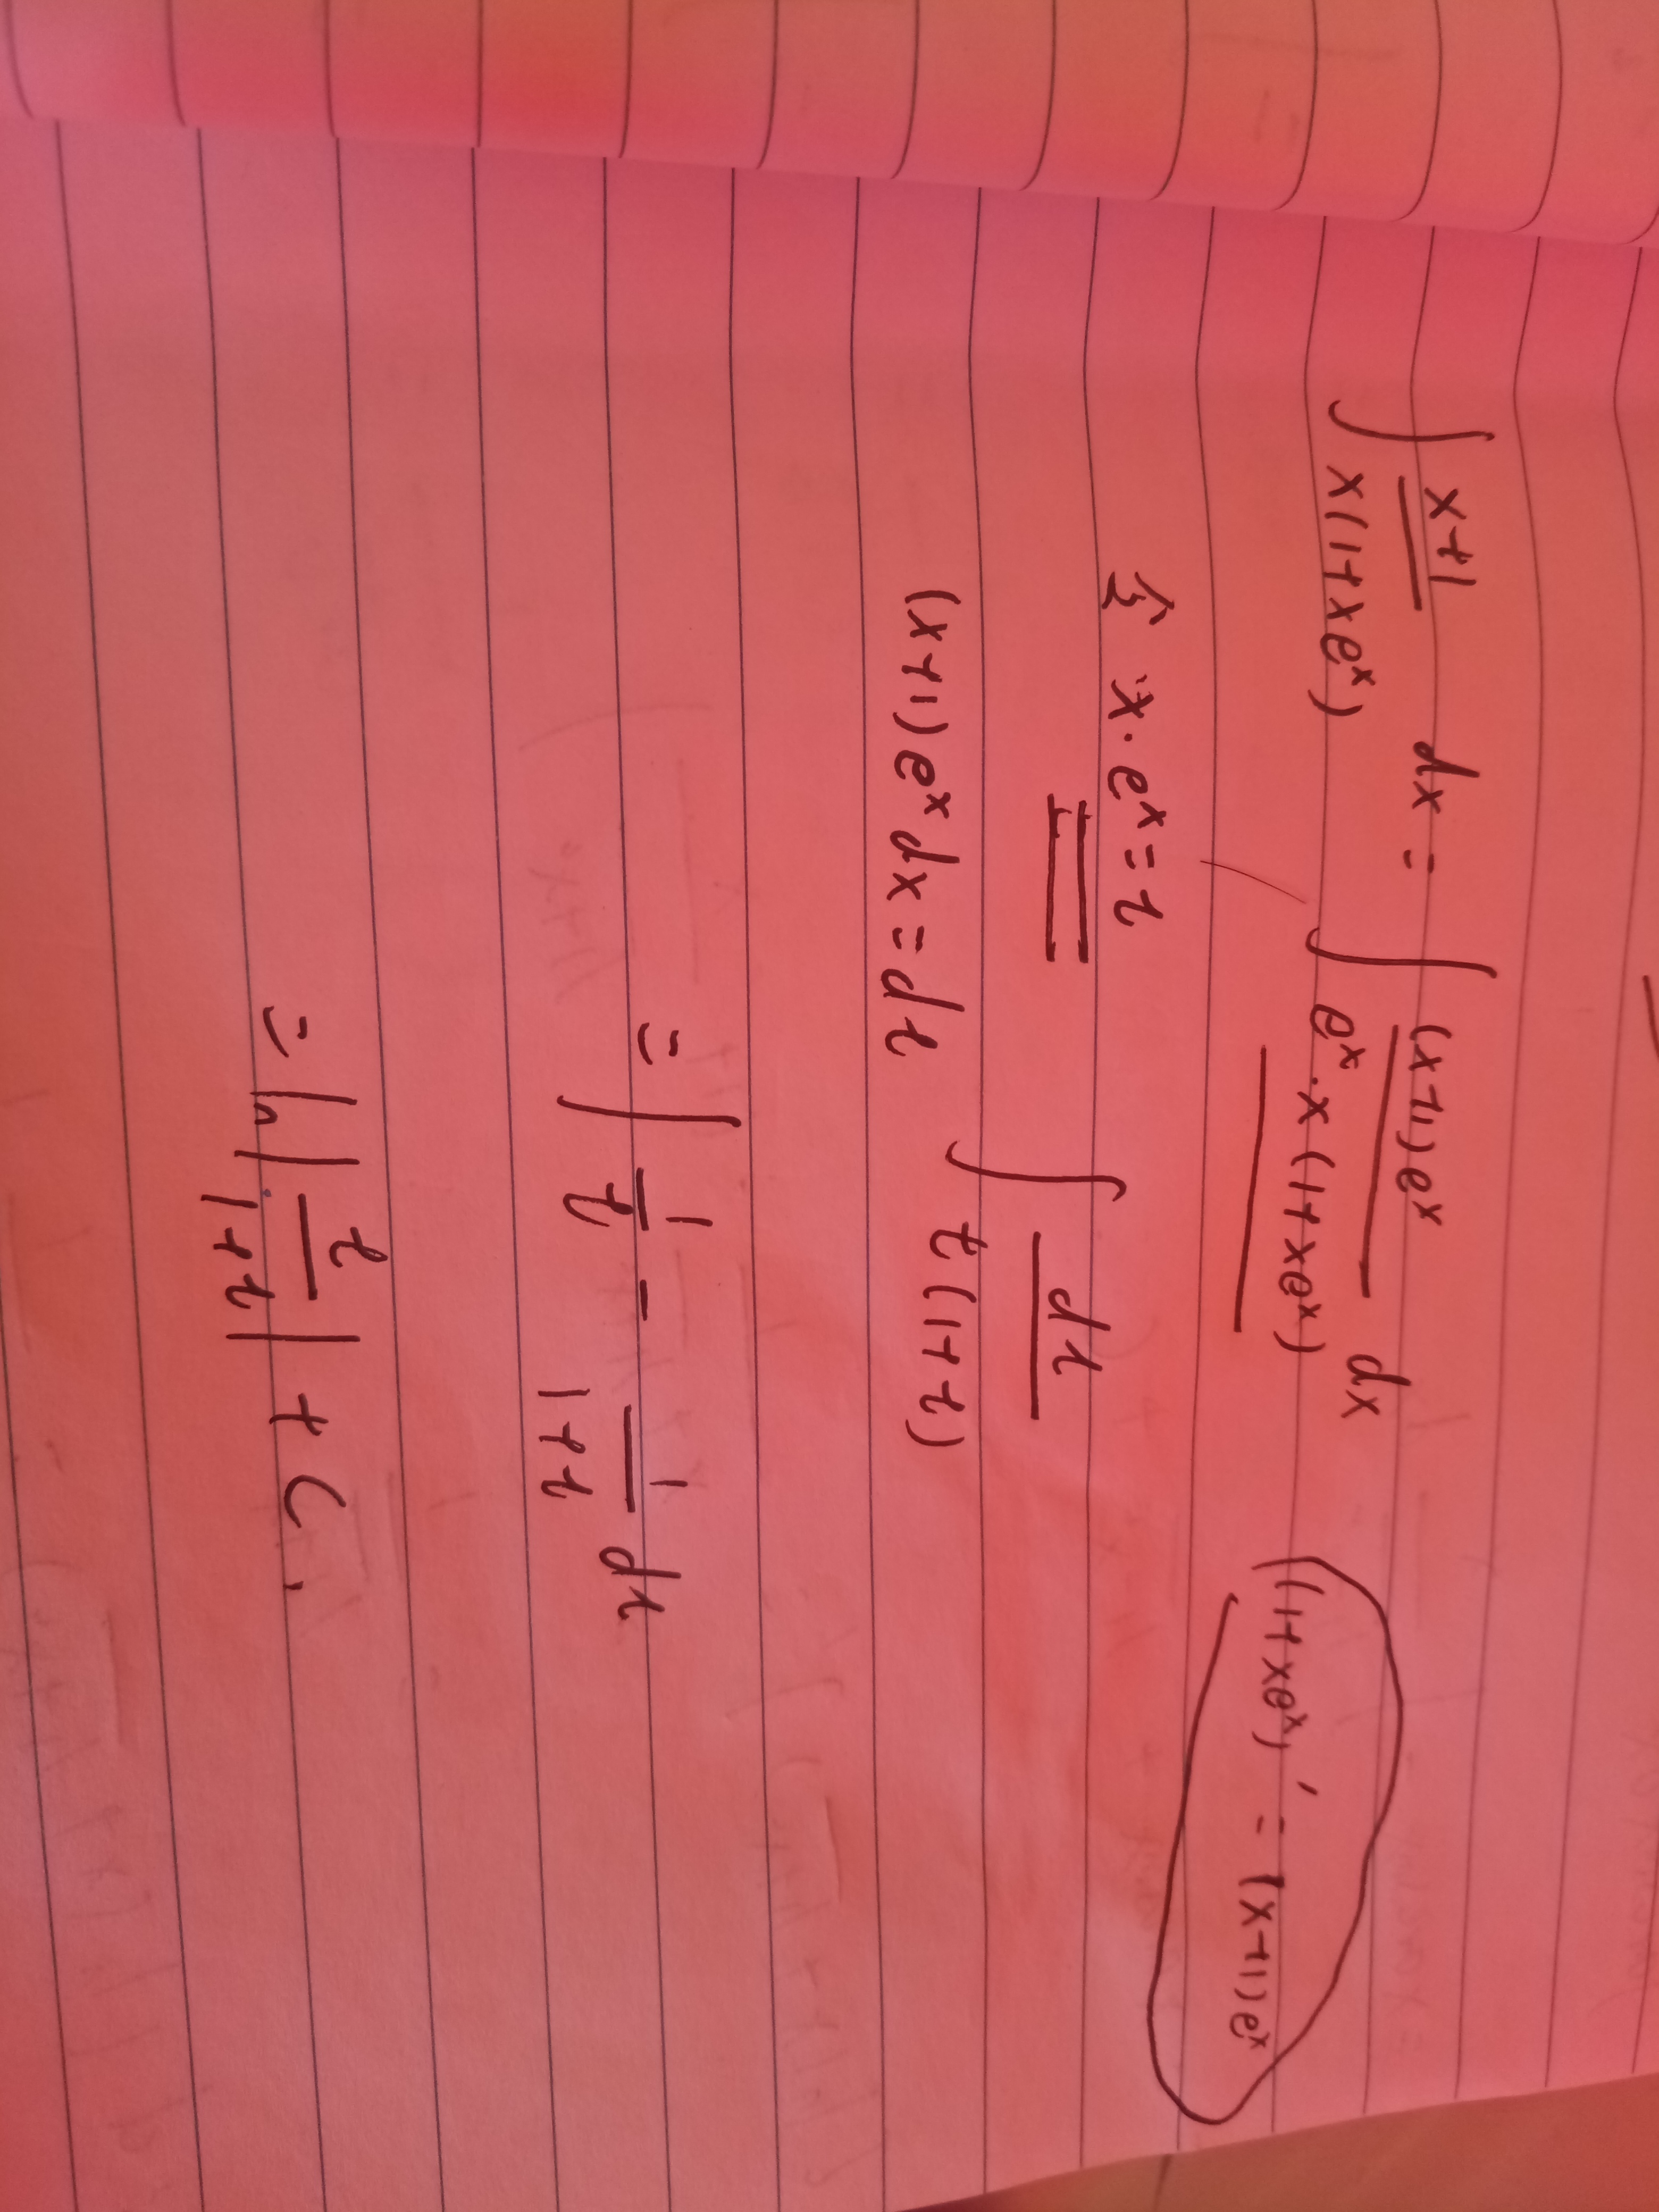 ∫ (x+1)/(x(1+xe^x)) dx = ∫ ((x+1)e^x)/(e^x·x(1+xe^x)) dx
(1+xe^x)' = (x+1)e^x
令 x·e^x = t
(x+1)e^x dx = dt
∫ dt/(t(1+t))
= ∫ 1/t - 1/(1+t) dt
= ln|t/(1+t)| + C.